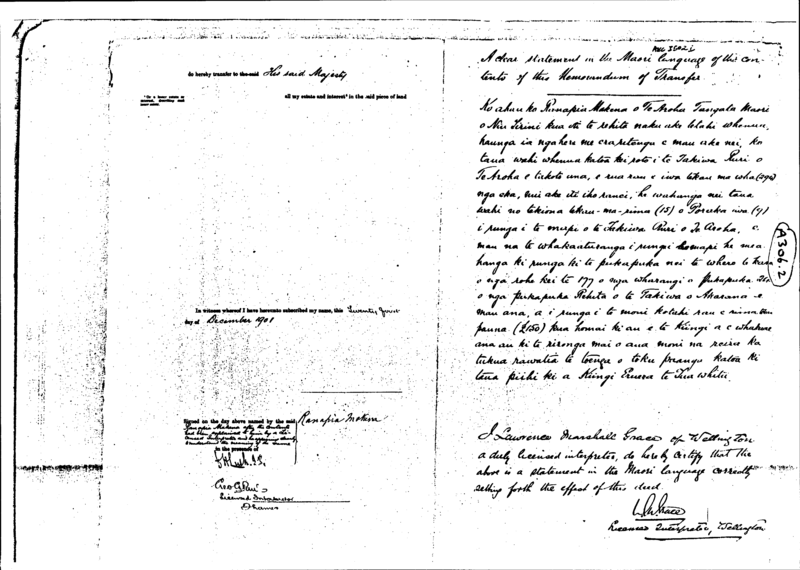 do hereby transfer to the said His said Majesty
all my estate and interest* in the said piece of land
In witness whereof I have hereunto subscribed my name, this Twenty
day of December 1901
Signed on the day above named by the said
Ranapia Mokena
in the presence of
Licensed Interpreter
Thames
A clear statement in the Maori language of the con-
tents of this Memorandum of Transfer.
Ko ahau ko Ranapia Mokena o Te Aroha Tangata Maori
o Niu Tirini kua oti te rehita naku ake tetahi whenua,
haunga ia nga here me era ritenga e mau ake nei, ko
taua wahi whenua katoa kei roto i te Takiwa Ruri o
Te Aroha e takoto ana, e rua rau e iwa tekau ma wha (294)
nga eka, nui ake iti iho ranei, he wahanga nei taua
wahi no tekiona tekau-ma-rima (15) o Poraka iwa (9)
i runga i te mapi o te Takiwa Ruri o Te Aroha, e
mau na te whakaaturanga i runga i he mea
hanga ki runga ki te pukapuka nei te whero te
o nga rohe kei te 177 o nga wharangi o Pukapuka
o nga pukapuka Rehita o te Takiwa o Akarana e
mau ana, a i runga i te moni kotahi rau e rima tekau
pauna (£150) kua homai ki au e te Kingi a e whakaae
ana au ki te rironga mai o aua moni na reira ka
tukua rawatia te toenga o toku paanga katoa ki
taua piihi ki a Kingi Eruera te Tuawhitu
I Lawrence Marshall Grace of Wellington
a duly licensed interpreter, do hereby certify that the
above is a statement in the Maori language correctly
setting forth the effect of this deed.
L M Grace
Licensed Interpreter, Wellington
A306.2